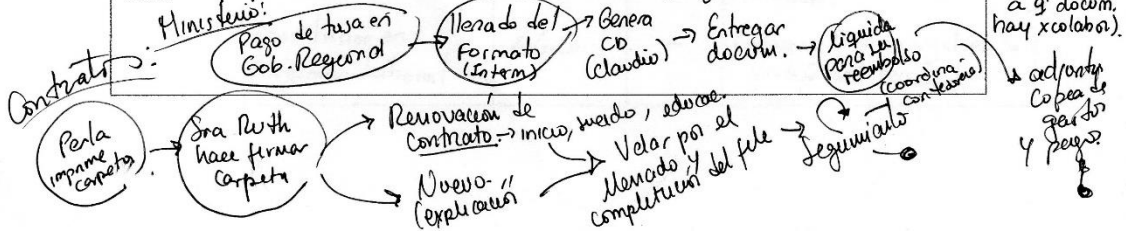 Ministerio:
Pago de tasa en
Gob. Regional
llenado del
Formato
(Interm)
Genera
CD
(Claudio)
Entregar
docum.
liquida
para su
reembolso
(coordina
con tesorería)
a q' docum.
hay x colabor).
adjuntar
copea de
gastos
y pagos.
Contratos:
Perla
imprime
carpetas
Sra Ruth
hace firmar
carpeta
Renovación de
contrato → inicio, sueldo, educac.
Nuevo-
(explicación
Velar por el
llenado y
completación del file
Seguimiento